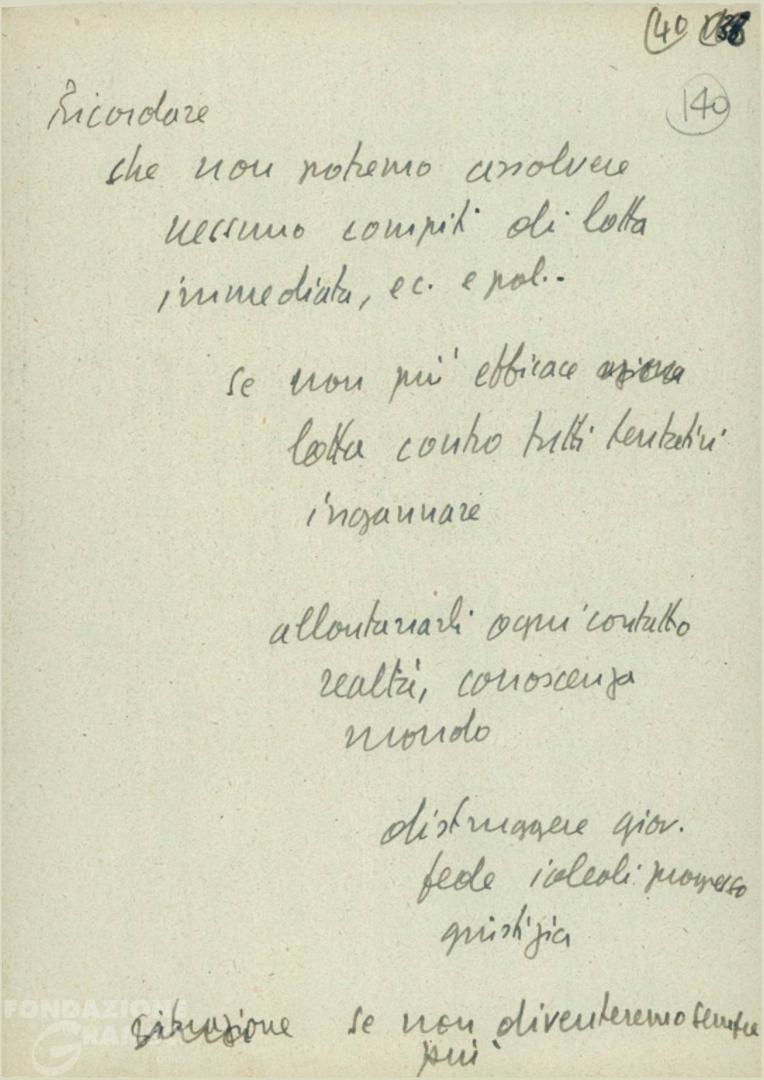 140
140
Ricordare
che non potremo assolvere
nessuno compiti di lotta
immediata, ec. e pol..
se non più efficace azione
lotta contro tutti tentativi
ingannare
allontanarli ogni contatto
realtà, conoscenza
mondo
distruggere giov.
fede ideali progresso
giustizia
situazione se non diventeremo sempre
più
FONDAZIONE
GRAMSCI